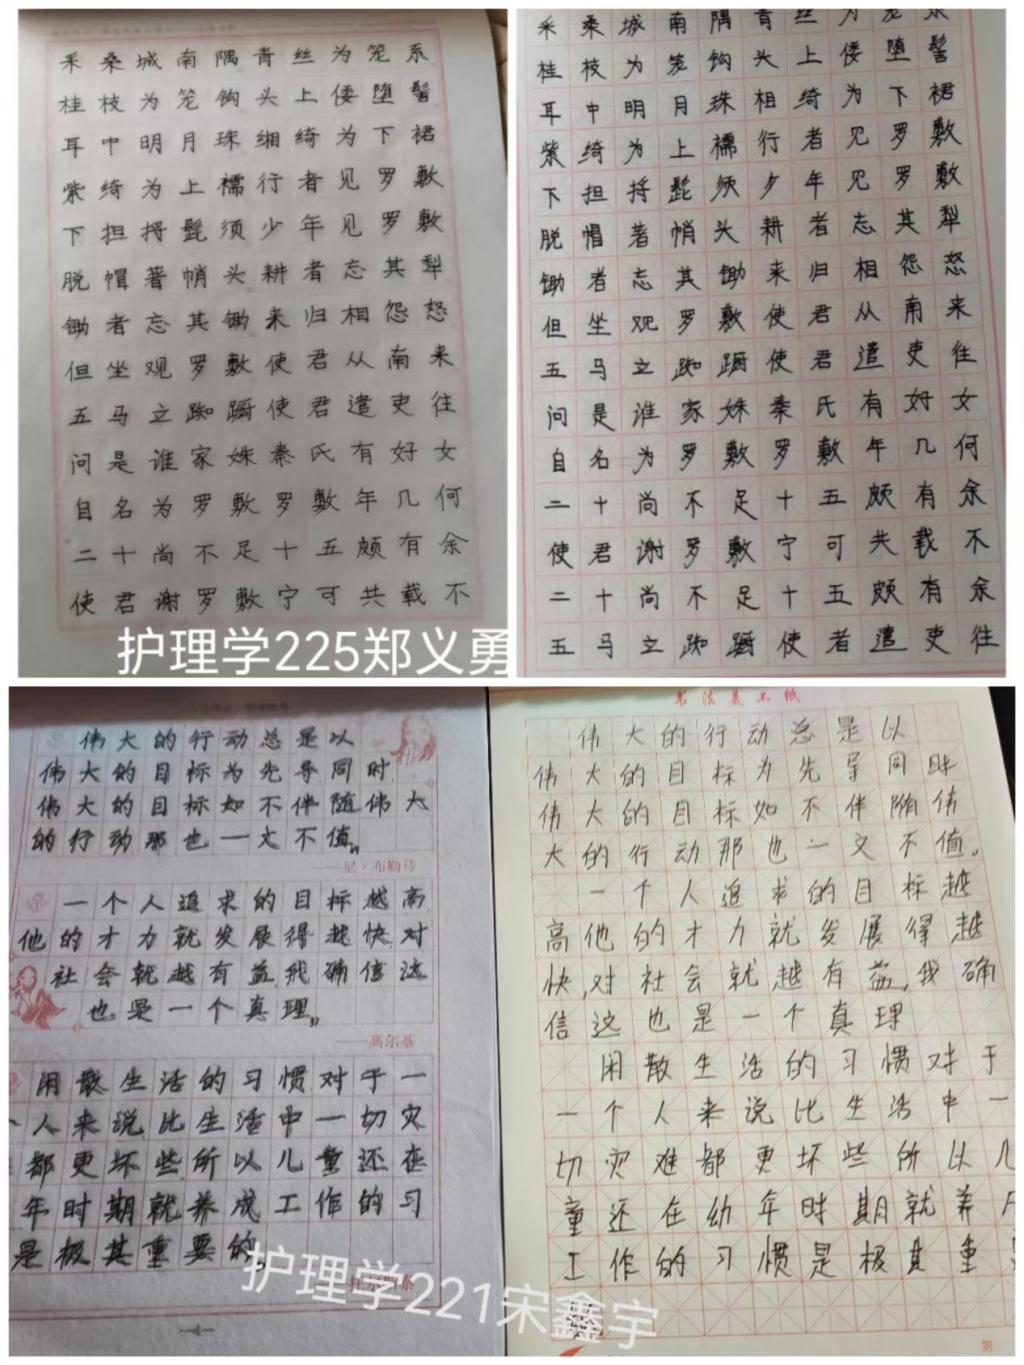 采桑城南隅青丝为笼系
桂枝为笼钩头上倭堕髻
耳中明月珠缃绮为下裙
紫绮为上襦行者见罗敷
下担捋髭须少年见罗敷
脱帽著帩头耕者忘其犁
锄者忘其锄来归相怨怒
但坐观罗敷使君从南来
五马立踟蹰使君遣吏往
问是谁家姝秦氏有好女
自名为罗敷罗敷年几何
二十尚不足十五颇有余
使君谢罗敷宁可共载不
护理学225郑义勇
采桑城南隅青丝为笼系
桂枝为笼钩头上倭堕髻
耳中明月珠相绮为下裙
紫绮为上襦行者见罗敷
下担捋髭须少年见罗敷
脱帽著帩头耕者忘其犁
锄者忘其锄来归相怨怒
但坐观罗敷使君从南来
五马立踟蹰使君遣吏往
问是谁家姝秦氏有好女
自名为罗敷罗敷年几何
二十尚不足十五颇有余
使君谢罗敷宁可共载不
二十尚不足十五颇有余
五马立踟蹰使者遣吏往
伟大的行动总是以
伟大的目标为先导同时
伟大的目标如不伴随伟大
的行动那也一文不值。”
——尼·布勒马
一个人追求的目标越高
他的才力就发展得越快对
社会就越有益我确信这
也是一个真理”
——高尔基
用散生活的习惯对于一
人来说比生活中一切灾
都更坏些所以儿童还在
年时期就养成工作的习
是极其重要的。
护理学221宋鑫宇
书法美工纸
伟大的行动总是以
伟大的目标为先导同时
伟大的目标如不伴随伟
大的行动那也一文不值。
一个人追求的目标越
高他的才力就发展得越
快,对社会就越有益,我确
信这也是一个真理
用散生活的习惯对于
一个人来说比生活中一
切灾难都更坏些所以儿
童还在幼年时期就养
工作的习惯是极其重
第